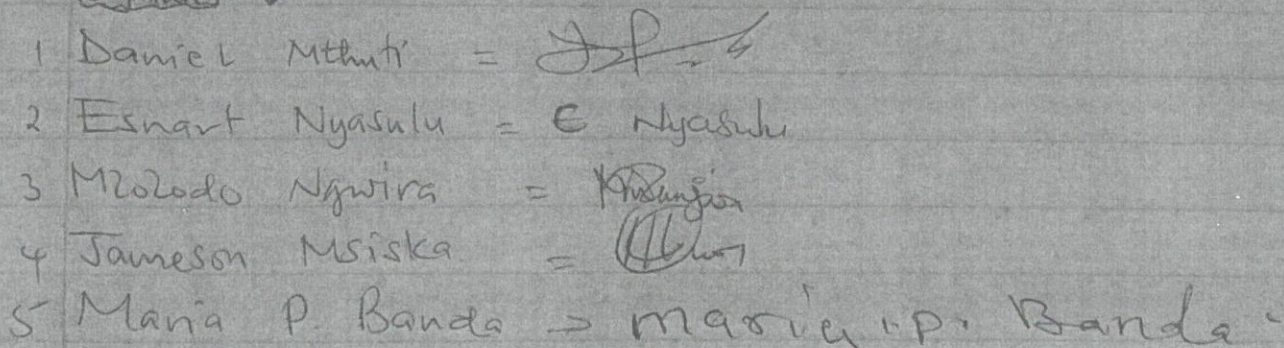 1 Daniel Mthuti =
2 Esnart Nyasulu = E Nyasulu
3 Mzozodo Ngwira =
4 Jameson Msiska =
5 Maria P. Banda = maria .p. Banda